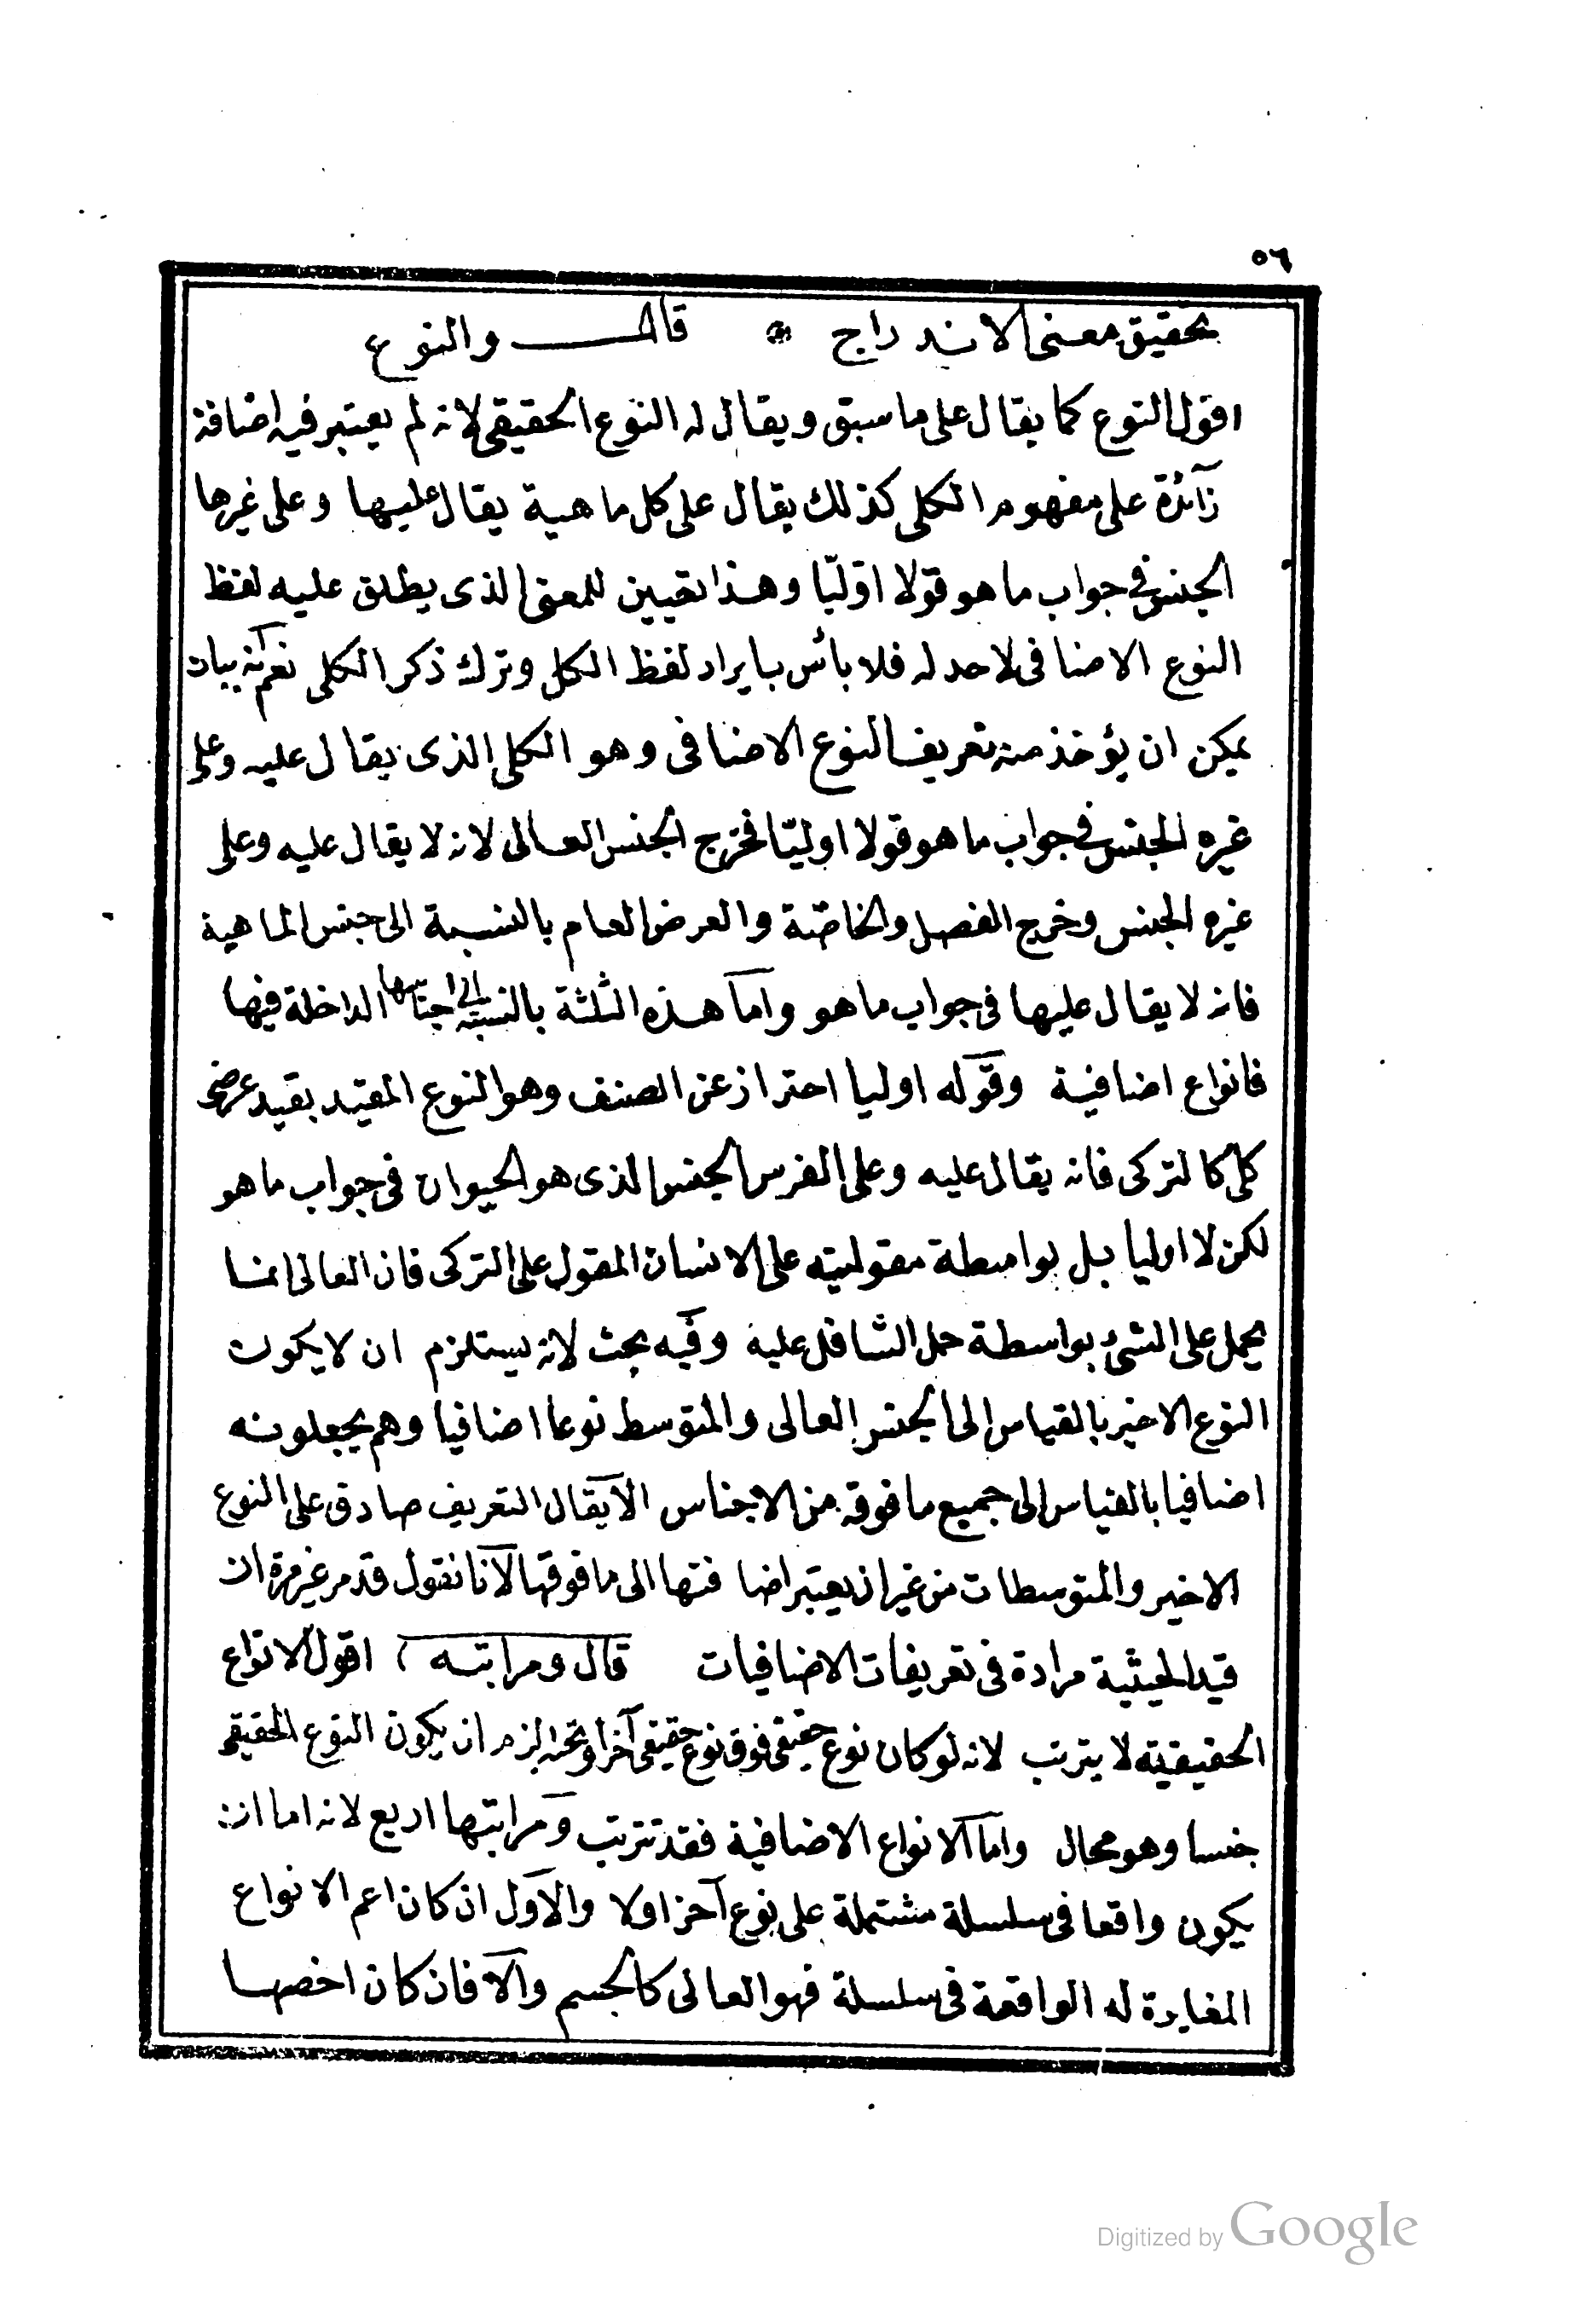 ٥٦
تحقيق معنى الاندراج * قال والنوع
اقول النوع كما يقال على ما سبق ويقال له النوع الحقيقى لانه لم يعتبر فيه اضافة
زآئدة على مفهوم الكلى كذلك يقال على كل ماهية يقال عليها وعلى غيرها
الجنس فى جواب ما هو قولا اوّليّا وهذا تعيين للمعنى الذى يطلق عليه لفظ
النوع الاضافى لا حد له فلا بأس بايراد لفظ الكل وترك ذكر الكلى نعم انه بيان
يمكن ان يؤخذ منه تعريف النوع الاضافى وهو الكلى الذى يقال عليه وعلى
غيره الجنس فى جواب ما هو قولا اوليّا فخرج الجنس العالى لانه لا يقال عليه وعلى
غيره الجنس وخرج الفصل والخاصّة والعرض العام بالنسبة الى جنس الماهية
فانه لا يقال عليها فى جواب ما هو وامآ هذه الثلثة بالنسبة الى اجناسها الداخلة فيها
فانواع اضافية وقوله اوليا احتراز عن الصنف وهو النوع المقيد بقيد عرضى
كلى كالتركى فانه يقال عليه وعلى الفرس الجنس الذى هو الحيوان فى جواب ما هو
لكن لا اوليا بل بواسطة مقوليته على الانسان المقول على التركى فان العالى انما
يحمل على الشئ بواسطة حمل السافل عليه وفيه بحث لانه يستلزم ان لا يكون
النوع الاخير بالقياس الى الجنس العالى والمتوسط نوعا اضافيا وهم يجعلونه
اضافيا بالقياس الى جميع ما فوقه من الاجناس الآيقال التعريف صادق على النوع
الاخير والمتوسطات من غير ان يعتبر اضافتها الى ما فوقها لآنا نقول قد مر غير مرة ان
قيد الحيثية مرادة فى تعريفات الاضافيات قال ومراتبه ) اقول الانواع
الحقيقية لا يترتب لانه لو كان نوع حقيقى فوق نوع حقيقى آخر او تحته لزم ان يكون النوع الحقيقى
جنسا وهو محال وامآ الانواع الاضافية فقد تترتب ومراتبها اربع لانه اما ان
يكون واقعا فى سلسلة مشتملة على نوع آخر او لا والآول ان كان اعم الانواع
المغايرة له الواقعة فى سلسلة فهو العالى كالجسم وآلا فان كان اخصها
Digitized by Google